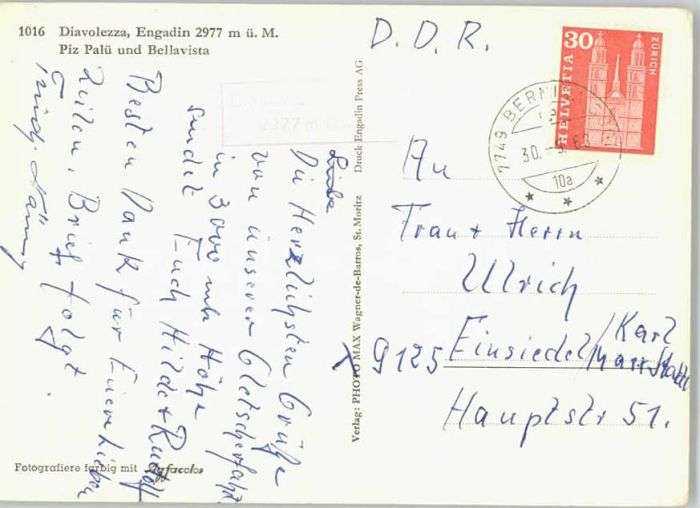 1016 Diavolezza, Engadin 2977 m ü. M.
Piz Palü und Bellavista
Liebe
Die Herzlichsten Grüße
von unserer Gletscherfahrt
in 3000 mtr Höhe
sendet Euch Hilde + Rudolf
Besten Dank für Eure Lieben
Zeilen, Brief folgt.
Verlag: PHOTO MAX Wagner-de-Barros, St. Moritz Druck Engadin Press AG
Fotografiere farbig mit Agfacolor
D. D. R.
30
ZÜRICH
HELVETIA
7749 BERNINA
30.
10a
An
Frau + Herrn
Ulrich
9125 Einsiedel / Karl
Marx Stadt
Hauptstr 51.